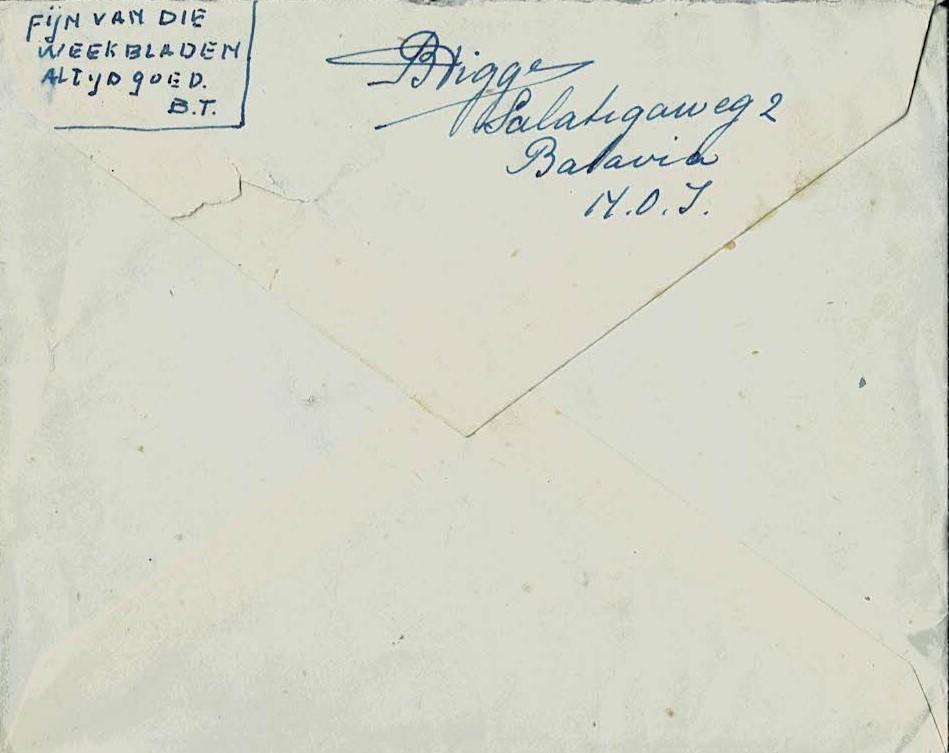 FIJN VAN DIE
WEEKBLADEN
ALTIJD GOED.
B.T.
BTigge
Salatigaweg 2
Batavia
N.O.I.